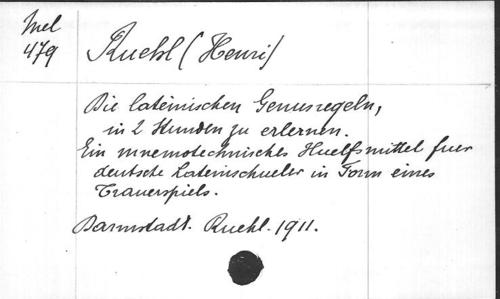 Mel
479
Ruehl (Henri)
Die lateinischen Genusregeln,
in 2 Stunden zu erlernen.
Ein mnemotechnisches Huelfsmittel fuer
deutsche Lateinschueler in Form eines
Trauerspiels.
Darmstadt. Ruehl. 1911.